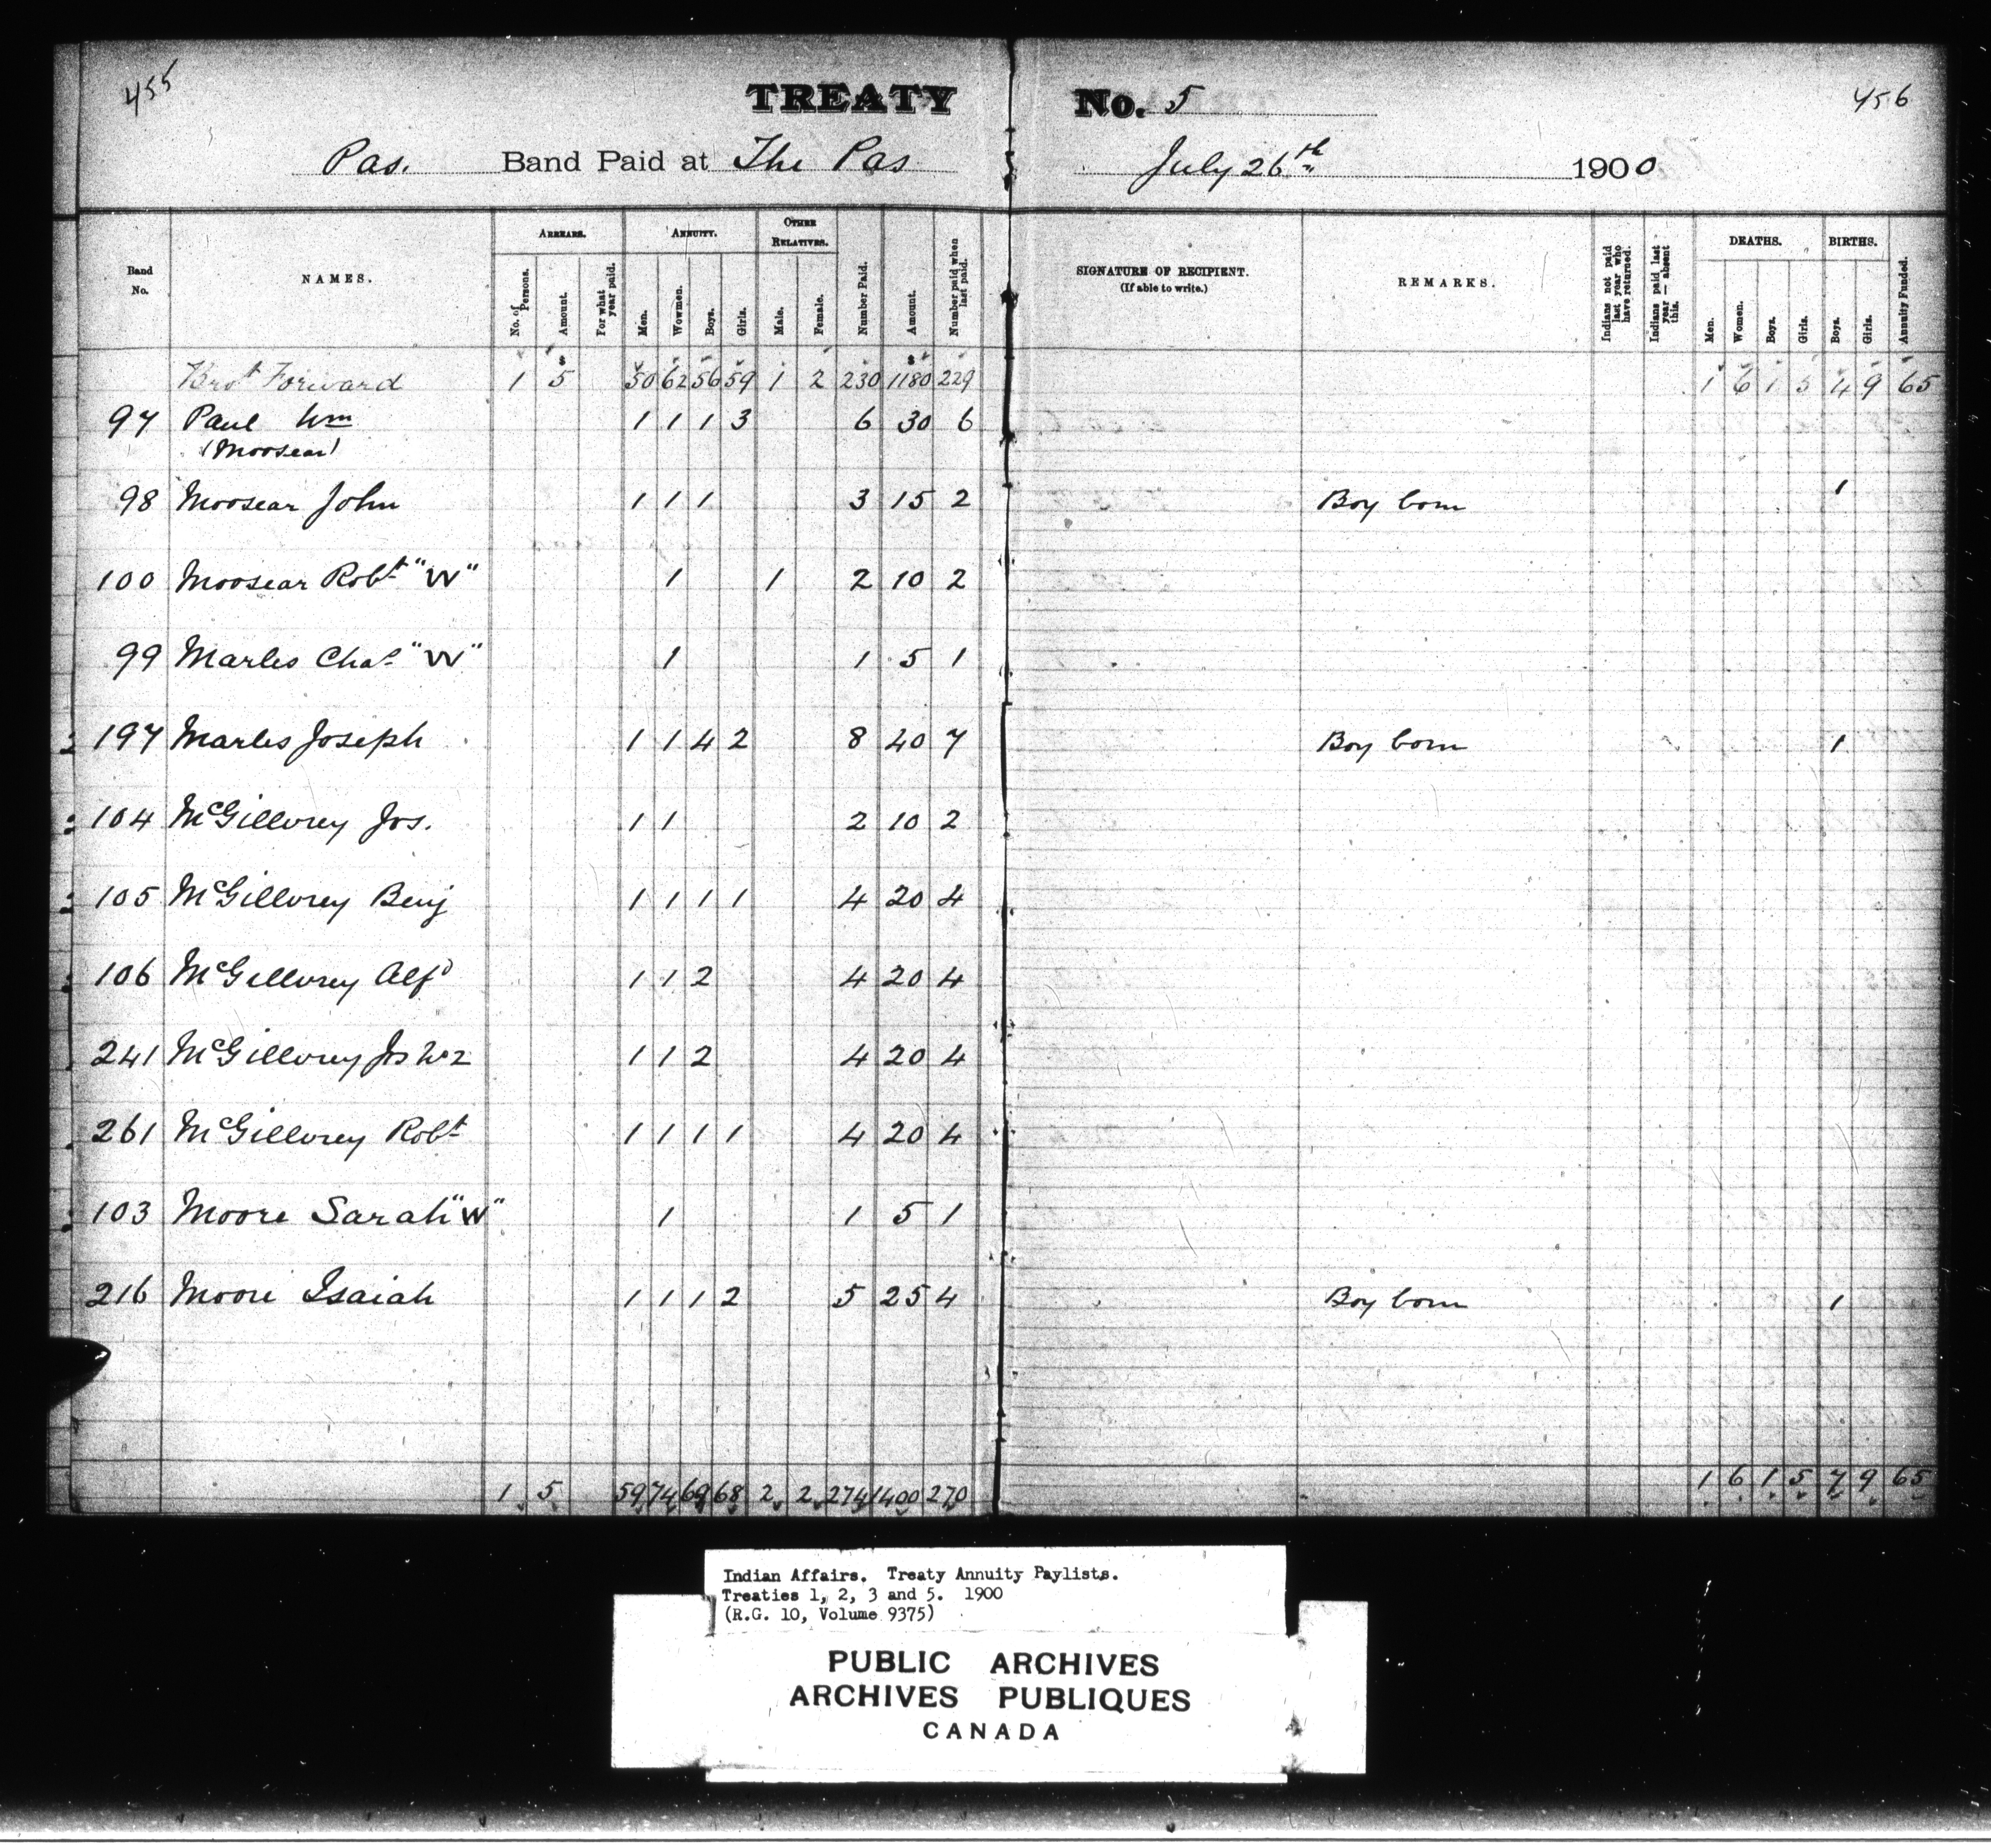 455
TREATY No. 5
456
Pas. Band Paid at The Pas July 26th 1900
Band No.
NAMES.
ARREARS.
No. of Persons.
Amount.
For what year paid.
ANNUITY.
Men.
Wowmen.
Boys.
Girls.
OTHER RELATIVES.
Male.
Female.
Number Paid.
Amount.
Number paid when last paid.
SIGNATURE OF RECIPIENT.
(If able to write.)
REMARKS.
Indians not paid last year who have returned.
Indians paid last year — absent this.
DEATHS.
Men.
Women.
Boys.
Girls.
BIRTHS.
Boys.
Girls.
Annuity Funded.
Brot Forward 1 $ 5 50 62 56 59 1 2 230 $ 1180 229 1 6 1 5 4 9 65
97 Paul Wm 1 1 1 3 6 30 6
(Moosear)
98 Moosear John 1 1 1 3 15 2 Boy born 1
100 Moosear Robt "W" 1 1 2 10 2
99 Marles Chas "W" 1 1 5 1
197 Marles Joseph 1 1 4 2 8 40 7 Boy born 1
104 McGillvrey Jos. 1 1 2 10 2
105 McGillvrey Benj 1 1 1 1 4 20 4
106 McGillvrey Alfd 1 1 2 4 20 4
241 McGillvrey Jos No 2 1 1 2 4 20 4
261 McGillvrey Robt 1 1 1 1 4 20 4
103 Moore Sarah "W" 1 1 5 1
216 Moore Isaiah 1 1 1 2 5 25 4 Boy born 1
1 5 59 74 69 68 2 2 274 1400 270 1 6 1 5 7 9 65
Indian Affairs. Treaty Annuity Paylists.
Treaties 1, 2, 3 and 5. 1900
(R.G. 10, Volume 9375)
PUBLIC ARCHIVES
ARCHIVES PUBLIQUES
CANADA